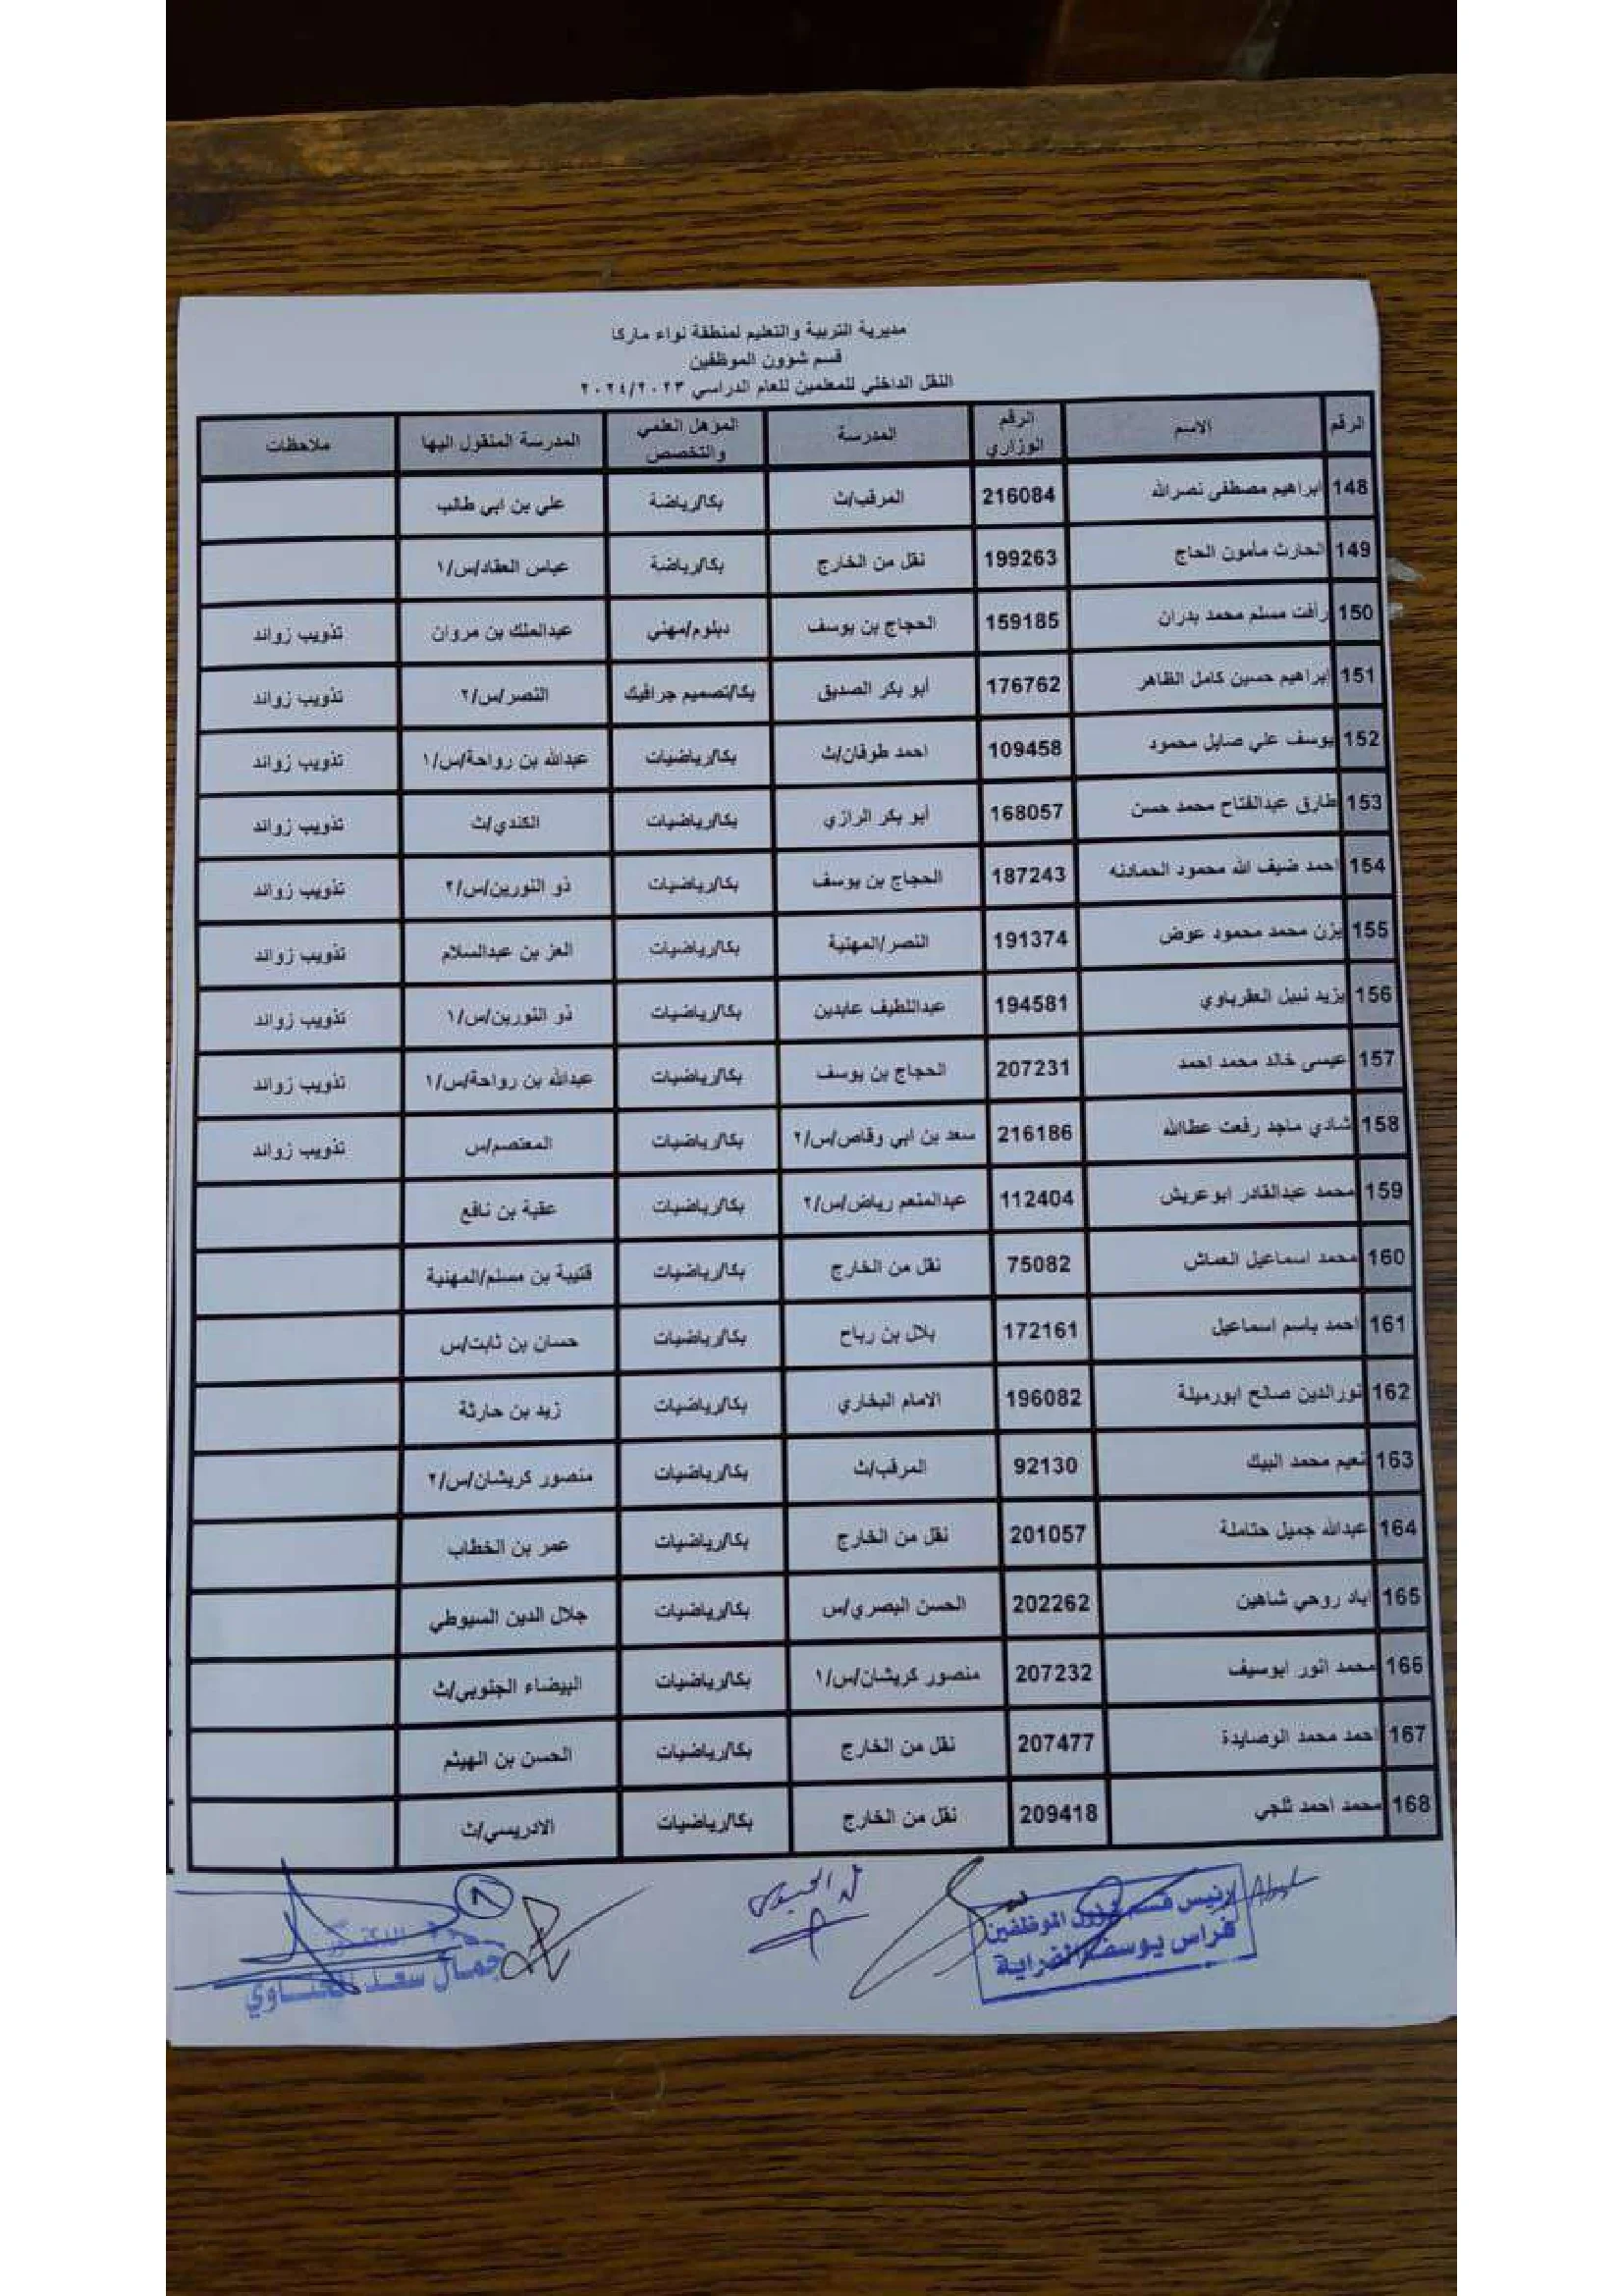 مديرية التربية والتعليم لمنطقة لواء ماركا
قسم شوون الموظفين
النقل الداخلي للمعلمين للعام الدراسي ٢٠٢٤/٢٠٢٣
الرقم الاسم الرقم الوزاري المدرسة المؤهل العلمي والتخصص المدرسة المنقول اليها ملاحظات
148 ابراهيم مصطفى نصرالله 216084 المرقب/ث بكا/رياضة علي بن ابي طالب
149 الحارث مأمون الحاج 199263 نقل من الخارج بكا/رياضة عباس العقاد/س/١
150 رأفت مسلم محمد بدران 159185 الحجاج بن يوسف دبلوم/مهني عبدالملك بن مروان تذويب زوائد
151 إبراهيم حسين كامل الظاهر 176762 أبو بكر الصديق بكا/تصميم جرافيك النصر/س/٢ تذويب زوائد
152 يوسف علي صايل محمود 109458 احمد طوقان/ث بكا/رياضيات عبدالله بن رواحة/س/١ تذويب زوائد
153 طارق عبدالفتاح محمد حسن 168057 أبو بكر الرازي بكا/رياضيات الكندي/ث تذويب زوائد
154 احمد ضيف الله محمود الحمادنه 187243 الحجاج بن يوسف بكا/رياضيات ذو النورين/س/٢ تذويب زوائد
155 يزن محمد محمود عوض 191374 النصر/المهنية بكا/رياضيات العز بن عبدالسلام تذويب زوائد
156 يزيد نبيل العقرباوي 194581 عبداللطيف عابدين بكا/رياضيات ذو النورين/س/١ تذويب زوائد
157 عيسى خالد محمد احمد 207231 الحجاج بن يوسف بكا/رياضيات عبدالله بن رواحة/س/١ تذويب زوائد
158 شادي ماجد رفعت عطاالله 216186 سعد بن ابي وقاص/س/٢ بكا/رياضيات المعتصم/س تذويب زوائد
159 محمد عبدالقادر ابوعريش 112404 عبدالمنعم رياض/س/٢ بكا/رياضيات عقبة بن نافع
160 محمد اسماعيل العماش 75082 نقل من الخارج بكا/رياضيات قتيبة بن مسلم/المهنية
161 احمد باسم اسماعيل 172161 بلال بن رباح بكا/رياضيات حسان بن ثابت/س
162 نورالدين صالح ابورميلة 196082 الامام البخاري بكا/رياضيات زيد بن حارثة
163 نعيم محمد البيك 92130 المرقب/ث بكا/رياضيات منصور كريشان/س/٢
164 عبدالله جميل حتاملة 201057 نقل من الخارج بكا/رياضيات عمر بن الخطاب
165 اياد روحي شاهين 202262 الحسن البصري/س بكا/رياضيات جلال الدين السيوطي
166 محمد انور ابوسيف 207232 منصور كريشان/س/١ بكا/رياضيات البيضاء الجنوبي/ث
167 احمد محمد الوصايدة 207477 نقل من الخارج بكا/رياضيات الحسن بن الهيثم
168 محمد احمد ثلجي 209418 نقل من الخارج بكا/رياضيات الادريسي/ث
رئيس قسم شؤون الموظفين
فراس يوسف الفراية
٨
الدكتور
جمال سعد